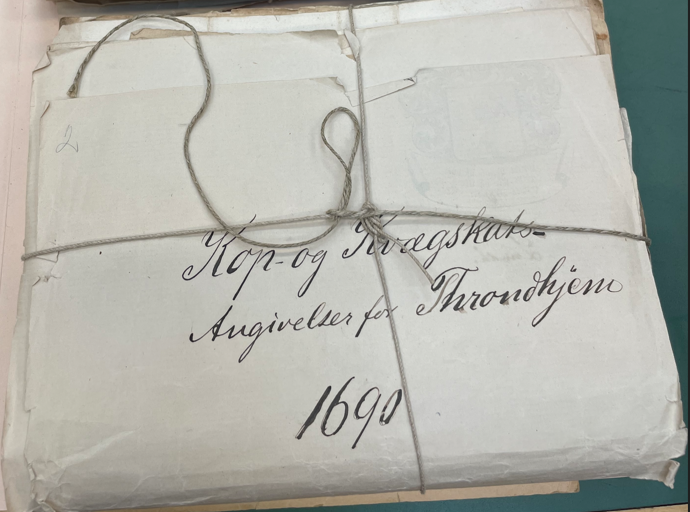 2
Kop- og Kvægskats-
Angivelser for Throndhjem
1690